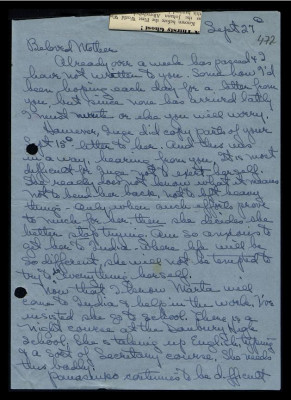 A Thirsty School!
Sept 27th
472
Beloved Mother
Already over a week has passed & I
have not written to you. Some how I'd
been hoping each day for a letter from
you, but since none has arrived lately
I must write or else you will worry.
However, Inge did copy parts of your
Sept 15th letter to her. And this was
in a way, hearing from you. It is most
difficult for Inge not to exert herself.
She really does not know what it means
not to bend her back, not to lift heavy
things. Only when each efforts prove
to much for her then she decides she
better stop trying. Am so anxious to
get her to India. There life will be
so different, she will not be tempted to
try to do everything herself.
Now that I know Marta will
come to India & help in the work, I've
insisted she go to school. There is a
night course at the Danbury High
School, She is taking up English, typing
& a sort of Secretary course. She needs
this badly.
continues to be difficult